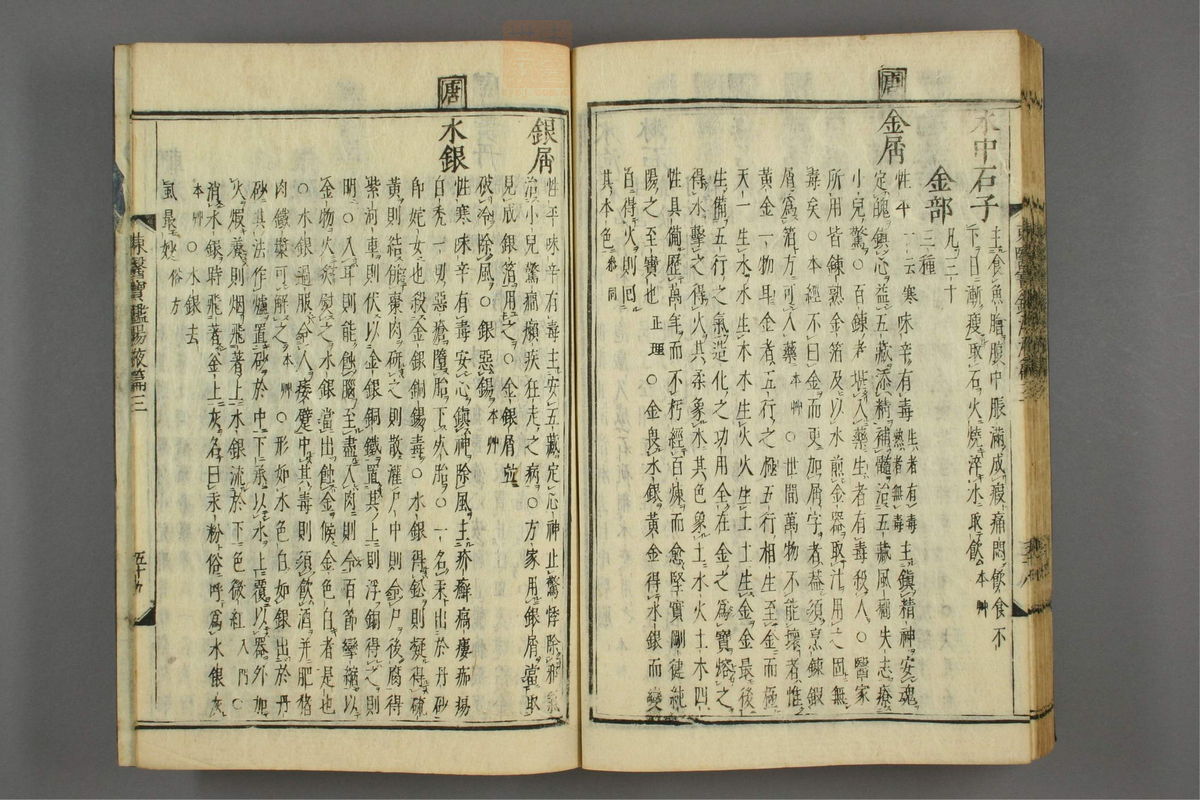 水中石子
主食魚膾腹中脹滿成瘕痛悶飲食不
下日漸瘦取石火燒淬水取飲本艸
金部
凡三十
三種
唐
金屑
性平一云寒味辛有毒生者有毒熟者無毒主鎭精神安魂
定魄鎭心益五藏添精補髓治五藏風癎失志療
小兒驚○百鍊者堪入藥生者有毒殺人○醫家
所用皆鍊熟金箔及以水煎金器取汁用之固無
毒矣○本經不曰金而更加屑字者盖須烹鍊鍜
屑爲箔方可入藥本艸○世間萬物不能壞者惟
黃金一物耳金者五行之極五行相生至金而極
天一生水水生木木生火火生土土生金金最後
生備五行之氣造化之功用全在金之爲寶熔之
得水擊之得火其柔象木其色象土水火土木四
性具備歷萬年而不朽經百煉而愈堅實剛健純
陽之至寶也正理○金畏水銀黃金得水銀而變
白得火則回
其本色
銀屑
性平味辛有毒主安五藏定心神止驚悸除邪氣
治小兒驚癎癲疾狂走之病○方家用銀屑當取
見成銀箔用之○金銀屑並
破冷除風○銀惡錫本艸
唐
水銀
性寒味辛有毒安心鎭神除風主疥癬痂瘍
白禿一切惡瘡墮胎下死胎○一名汞出於丹砂
卽姹女也殺金銀銅錫毒○水銀得鈆則凝得硫
黃則結併棗肉硏之則散灌尸中則令尸後腐得
紫河車則伏以金銀銅鐵置其上則浮銅得之則
明○入耳則能蝕腦至盡入肉則令百節攣縮以
金物火炙熨之水銀當出蝕金候金色白者是也
○水銀過服令人痿躄中其毒則須飮酒并肥猪
肉鐵漿可解之本艸○形如水色白如銀出於丹
砂其法作爐置砂於中下承以水上覆以器外加
火煆養則烟飛著上水銀流於下色微紅入門○
消水銀時飛著金上灰名曰汞粉俗呼爲水銀灰
本艸○水銀去
虱最妙俗方
東醫寶鑑湯液篇三
五十九